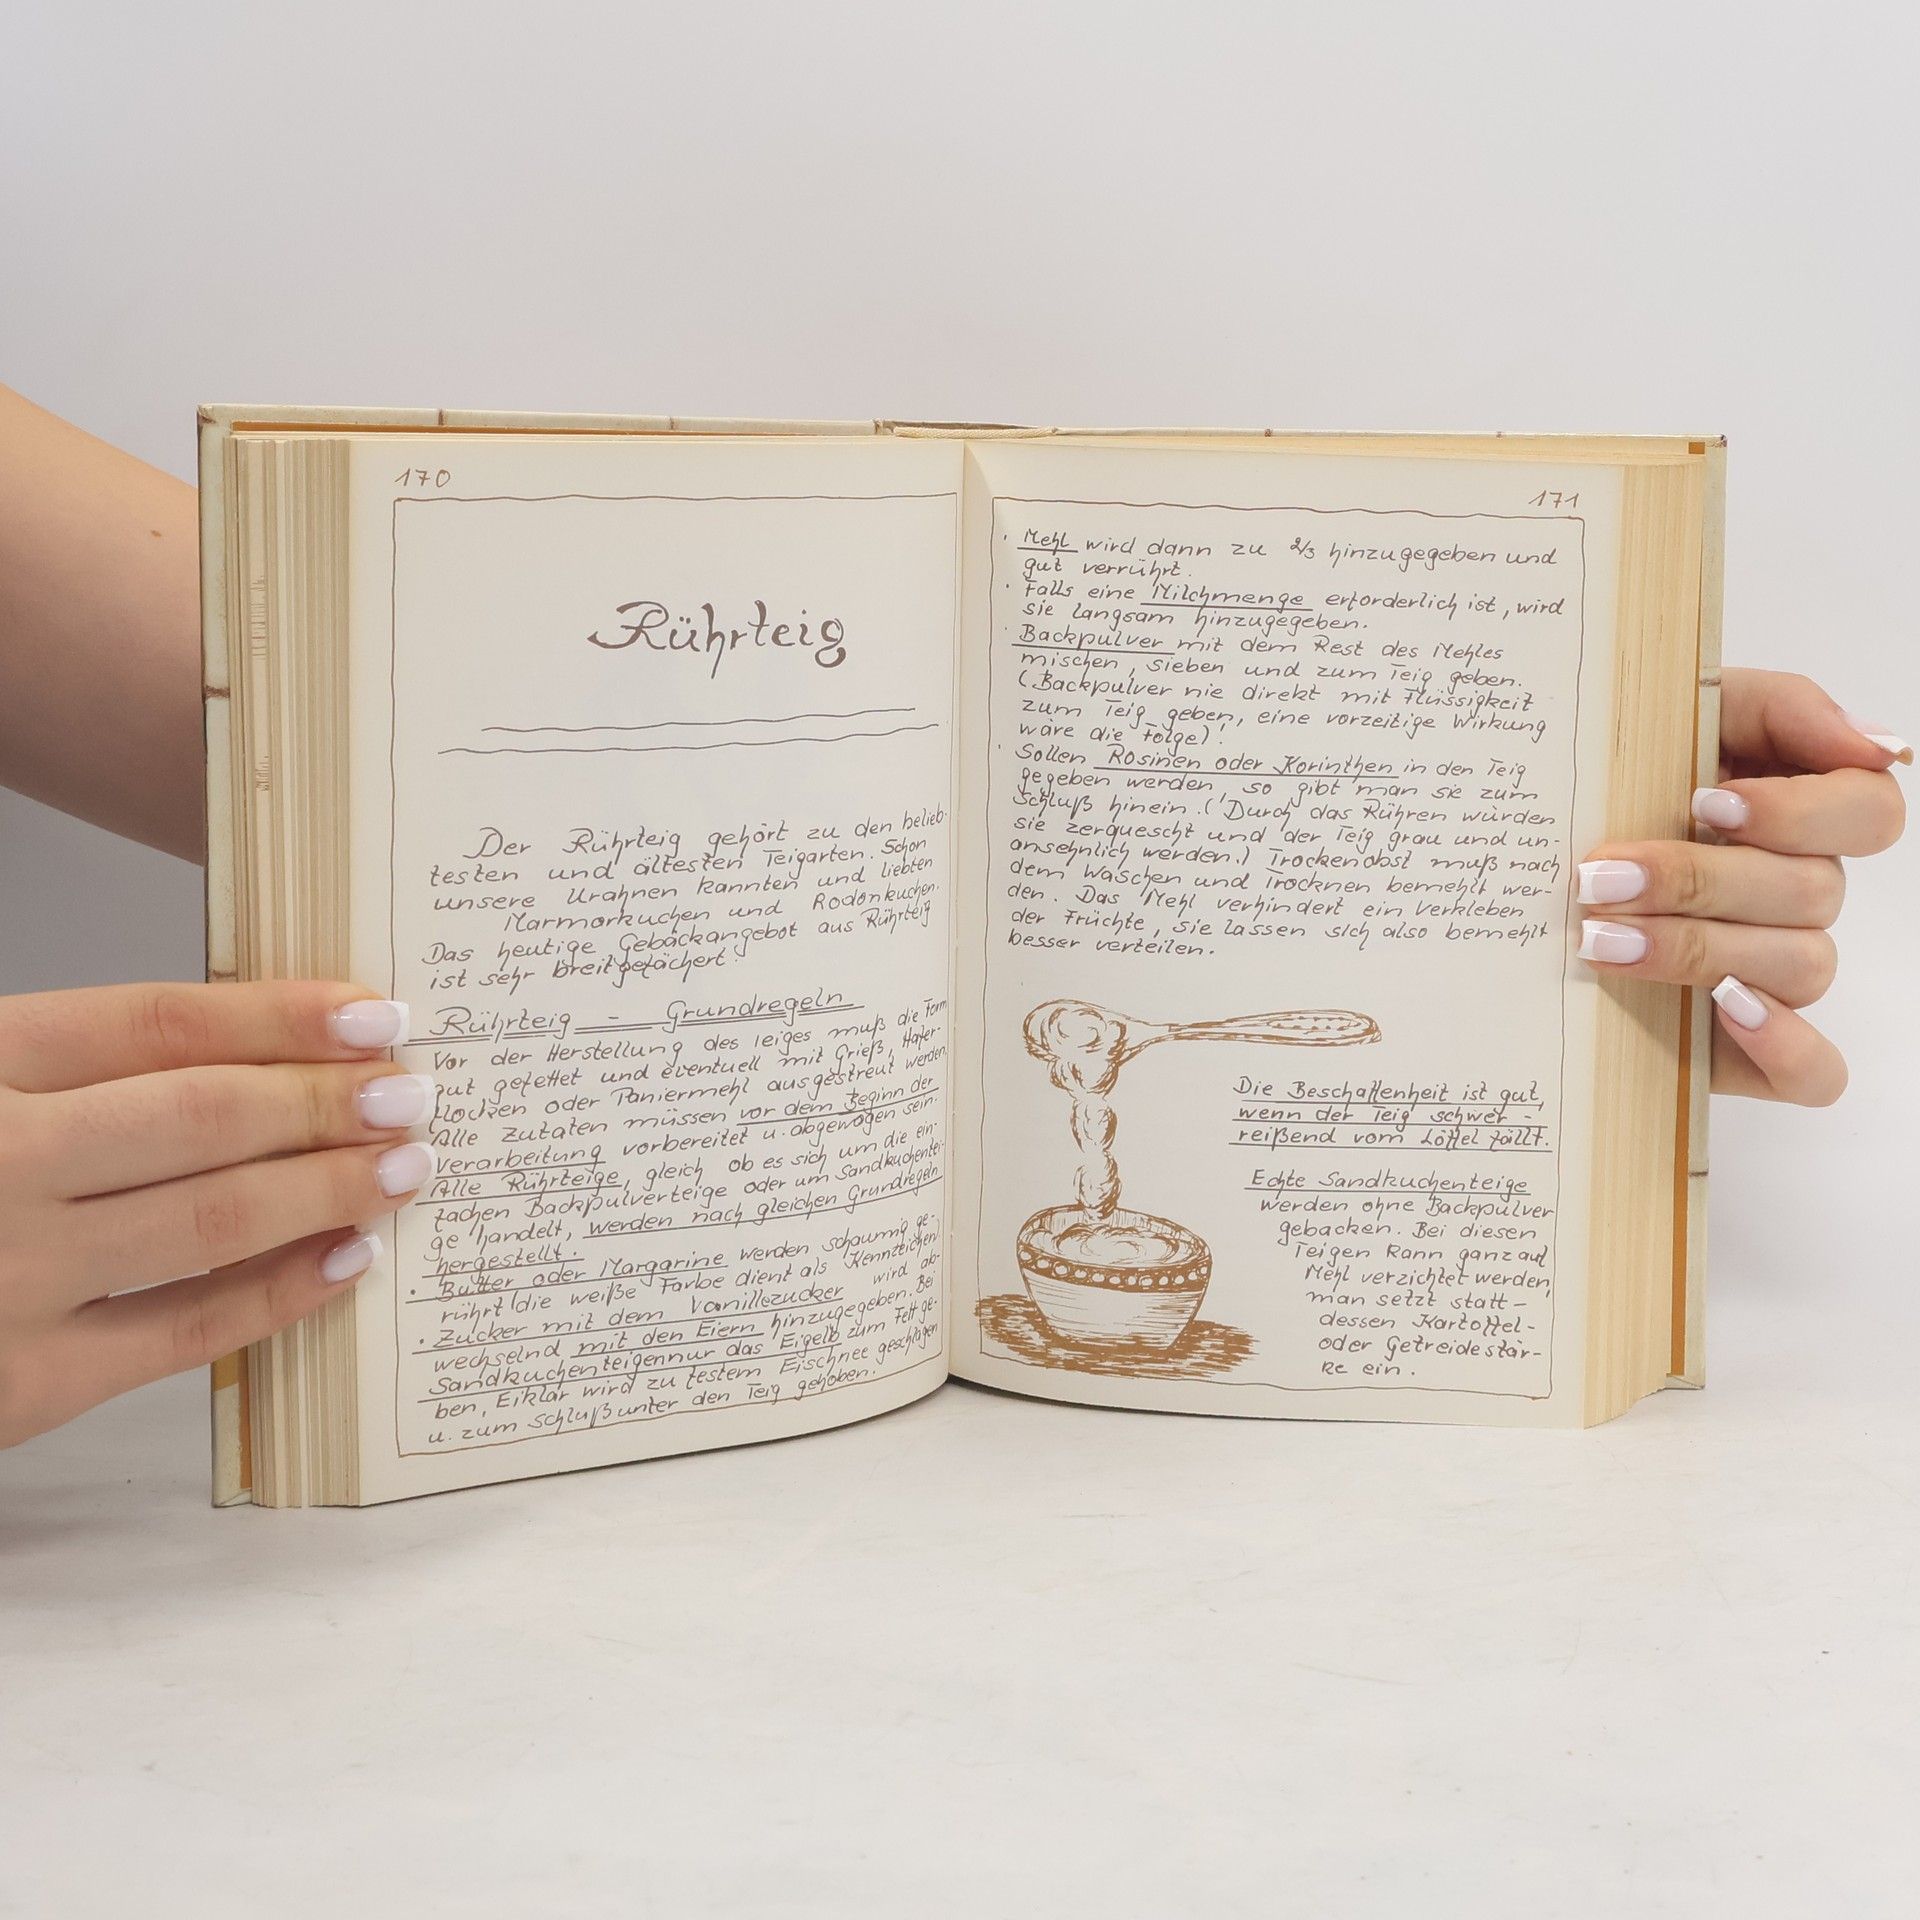 170
Rührteig
Der Rührteig gehört zu den belieb-
testen und ältesten Teigarten. Schon
unsere Urahnen kannten und liebten
Marmorkuchen und Rodonkuchen.
Das heutige Gebäckangebot aus Rührteig
ist sehr breitgefächert.
Rührteig - Grundregeln
Vor der Herstellung des Teiges muß die Form
gut gefettet und eventuell mit Grieß, Hafer-
flocken oder Paniermehl ausgestreut werden.
Alle Zutaten müssen vor dem Beginn der
Verarbeitung vorbereitet u. abgewogen sein.
Alle Rührteige, gleich ob es sich um die ein-
fachen Backpulverteige oder um Sandkuchentei-
ge handelt, werden nach gleichen Grundregeln
hergestellt.
· Butter oder Margarine werden schaumig ge-
rührt (die weiße Farbe dient als Kennzeichen)
· Zucker mit dem Vanillezucker wird ab-
wechselnd mit den Eiern hinzugegeben. Bei
Sandkuchenteigen nur das Eigelb zum Fett ge-
ben, Eiklar wird zu festem Eischnee geschlagen
u. zum Schluß unter den Teig gehoben.
171
· Mehl wird dann zu 2/3 hinzugegeben und
gut verrührt.
· Falls eine Milchmenge erforderlich ist, wird
sie langsam hinzugegeben.
· Backpulver mit dem Rest des Mehles
mischen, sieben und zum Teig geben.
(Backpulver nie direkt mit Flüssigkeit
zum Teig geben, eine vorzeitige Wirkung
wäre die Folge)!
· Sollen Rosinen oder Korinthen in den Teig
gegeben werden, so gibt man sie zum
Schluß hinein. (Durch das Rühren würden
sie zerquescht und der Teig grau und un-
ansehnlich werden.) Trockenobst muß nach
dem Waschen und Trocknen bemehlt wer-
den. Das Mehl verhindert ein Verkleben
der Früchte, sie lassen sich also bemehlt
besser verteilen.
Die Beschaffenheit ist gut,
wenn der Teig schwer-
reißend vom Löffel fällt.
Echte Sandkuchenteige
werden ohne Backpulver
gebacken. Bei diesen
Teigen kann ganz auf
Mehl verzichtet werden,
man setzt statt-
dessen Kartoffel-
oder Getreidestär-
ke ein.